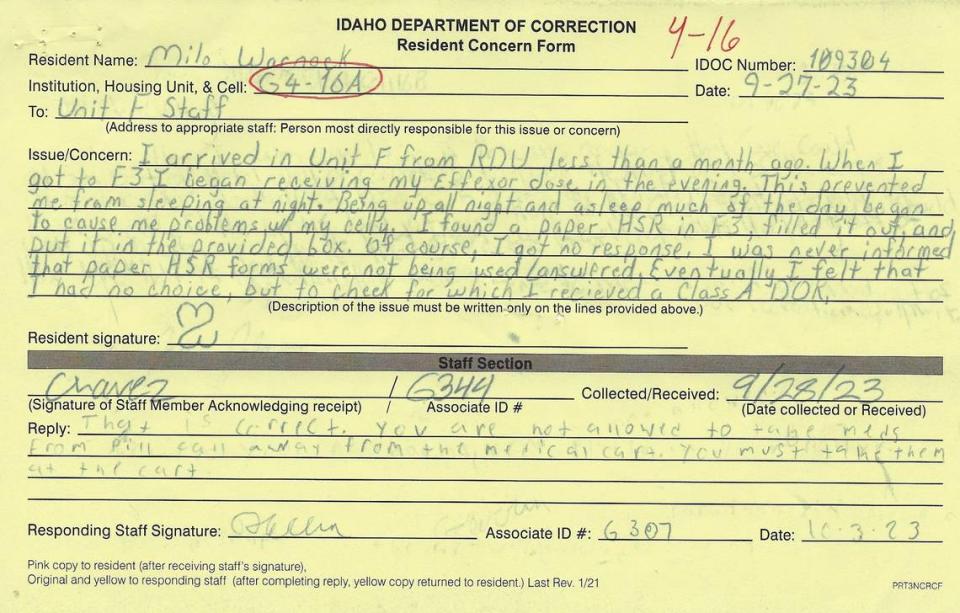 IDAHO DEPARTMENT OF CORRECTION
4-16
Resident Concern Form
Resident Name: Milo Warnock
IDOC Number: 109304
Institution, Housing Unit, & Cell: G4-16A
Date: 9-27-23
To: Unit F Staff
(Address to appropriate staff: Person most directly responsible for this issue or concern)
Issue/Concern: I arrived in Unit F from RDU less than a month ago. When I
got to F3 I began receiving my Effexor dose in the evening. This prevented
me from sleeping at night. Being up all night and asleep much of the day began
to cause me problems w/ my celly. I found a paper HSR in F3, filled it out, and
put it in the provided box. Of course, I got no response. I was never informed
that paper HSR forms were not being used/answered. Eventually I felt that
I had no choice, but to cheek for which I recieved a Class A DOR.
(Description of the issue must be written only on the lines provided above.)
Resident signature:
Staff Section
Chavez / G344 Collected/Received: 9/28/23
(Signature of Staff Member Acknowledging receipt) / Associate ID # (Date collected or Received)
Reply: That is correct. You are not allowed to take meds
from Pill call away from the medical cart. You must take them
at the cart
Responding Staff Signature: Associate ID #: G307 Date: 10-3-23
Pink copy to resident (after receiving staff's signature),
Original and yellow to responding staff (after completing reply, yellow copy returned to resident.) Last Rev. 1/21
PRT3NCRCF